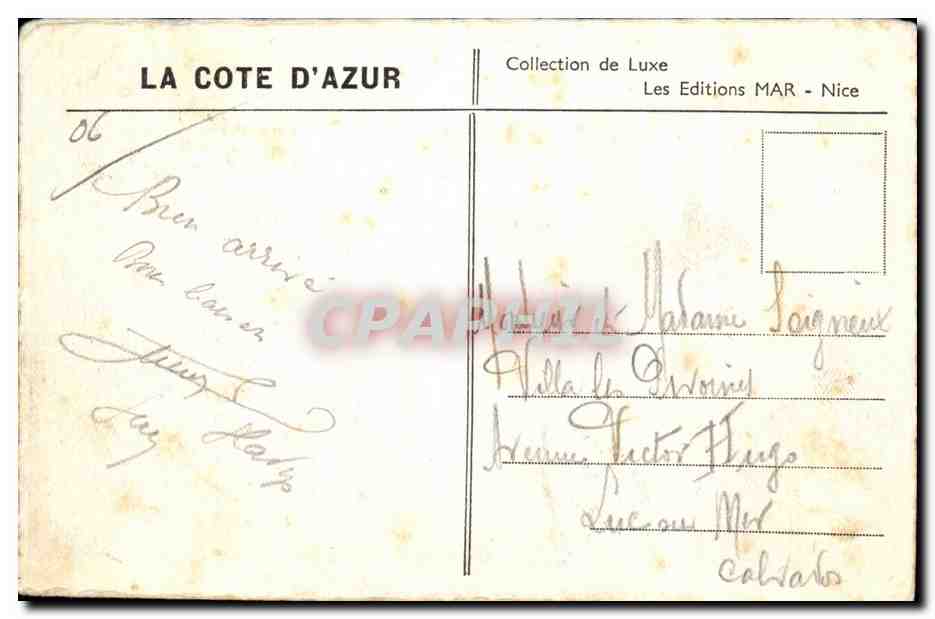 LA COTE D'AZUR
Collection de Luxe
Les Editions MAR - Nice
06
Bien arrivé
Bons baisers
CPAPHIL
Monsieur et Madame Soigneux
Villa les Pivoines
Avenue Victor Hugo
Luc sur Mer
Calvados